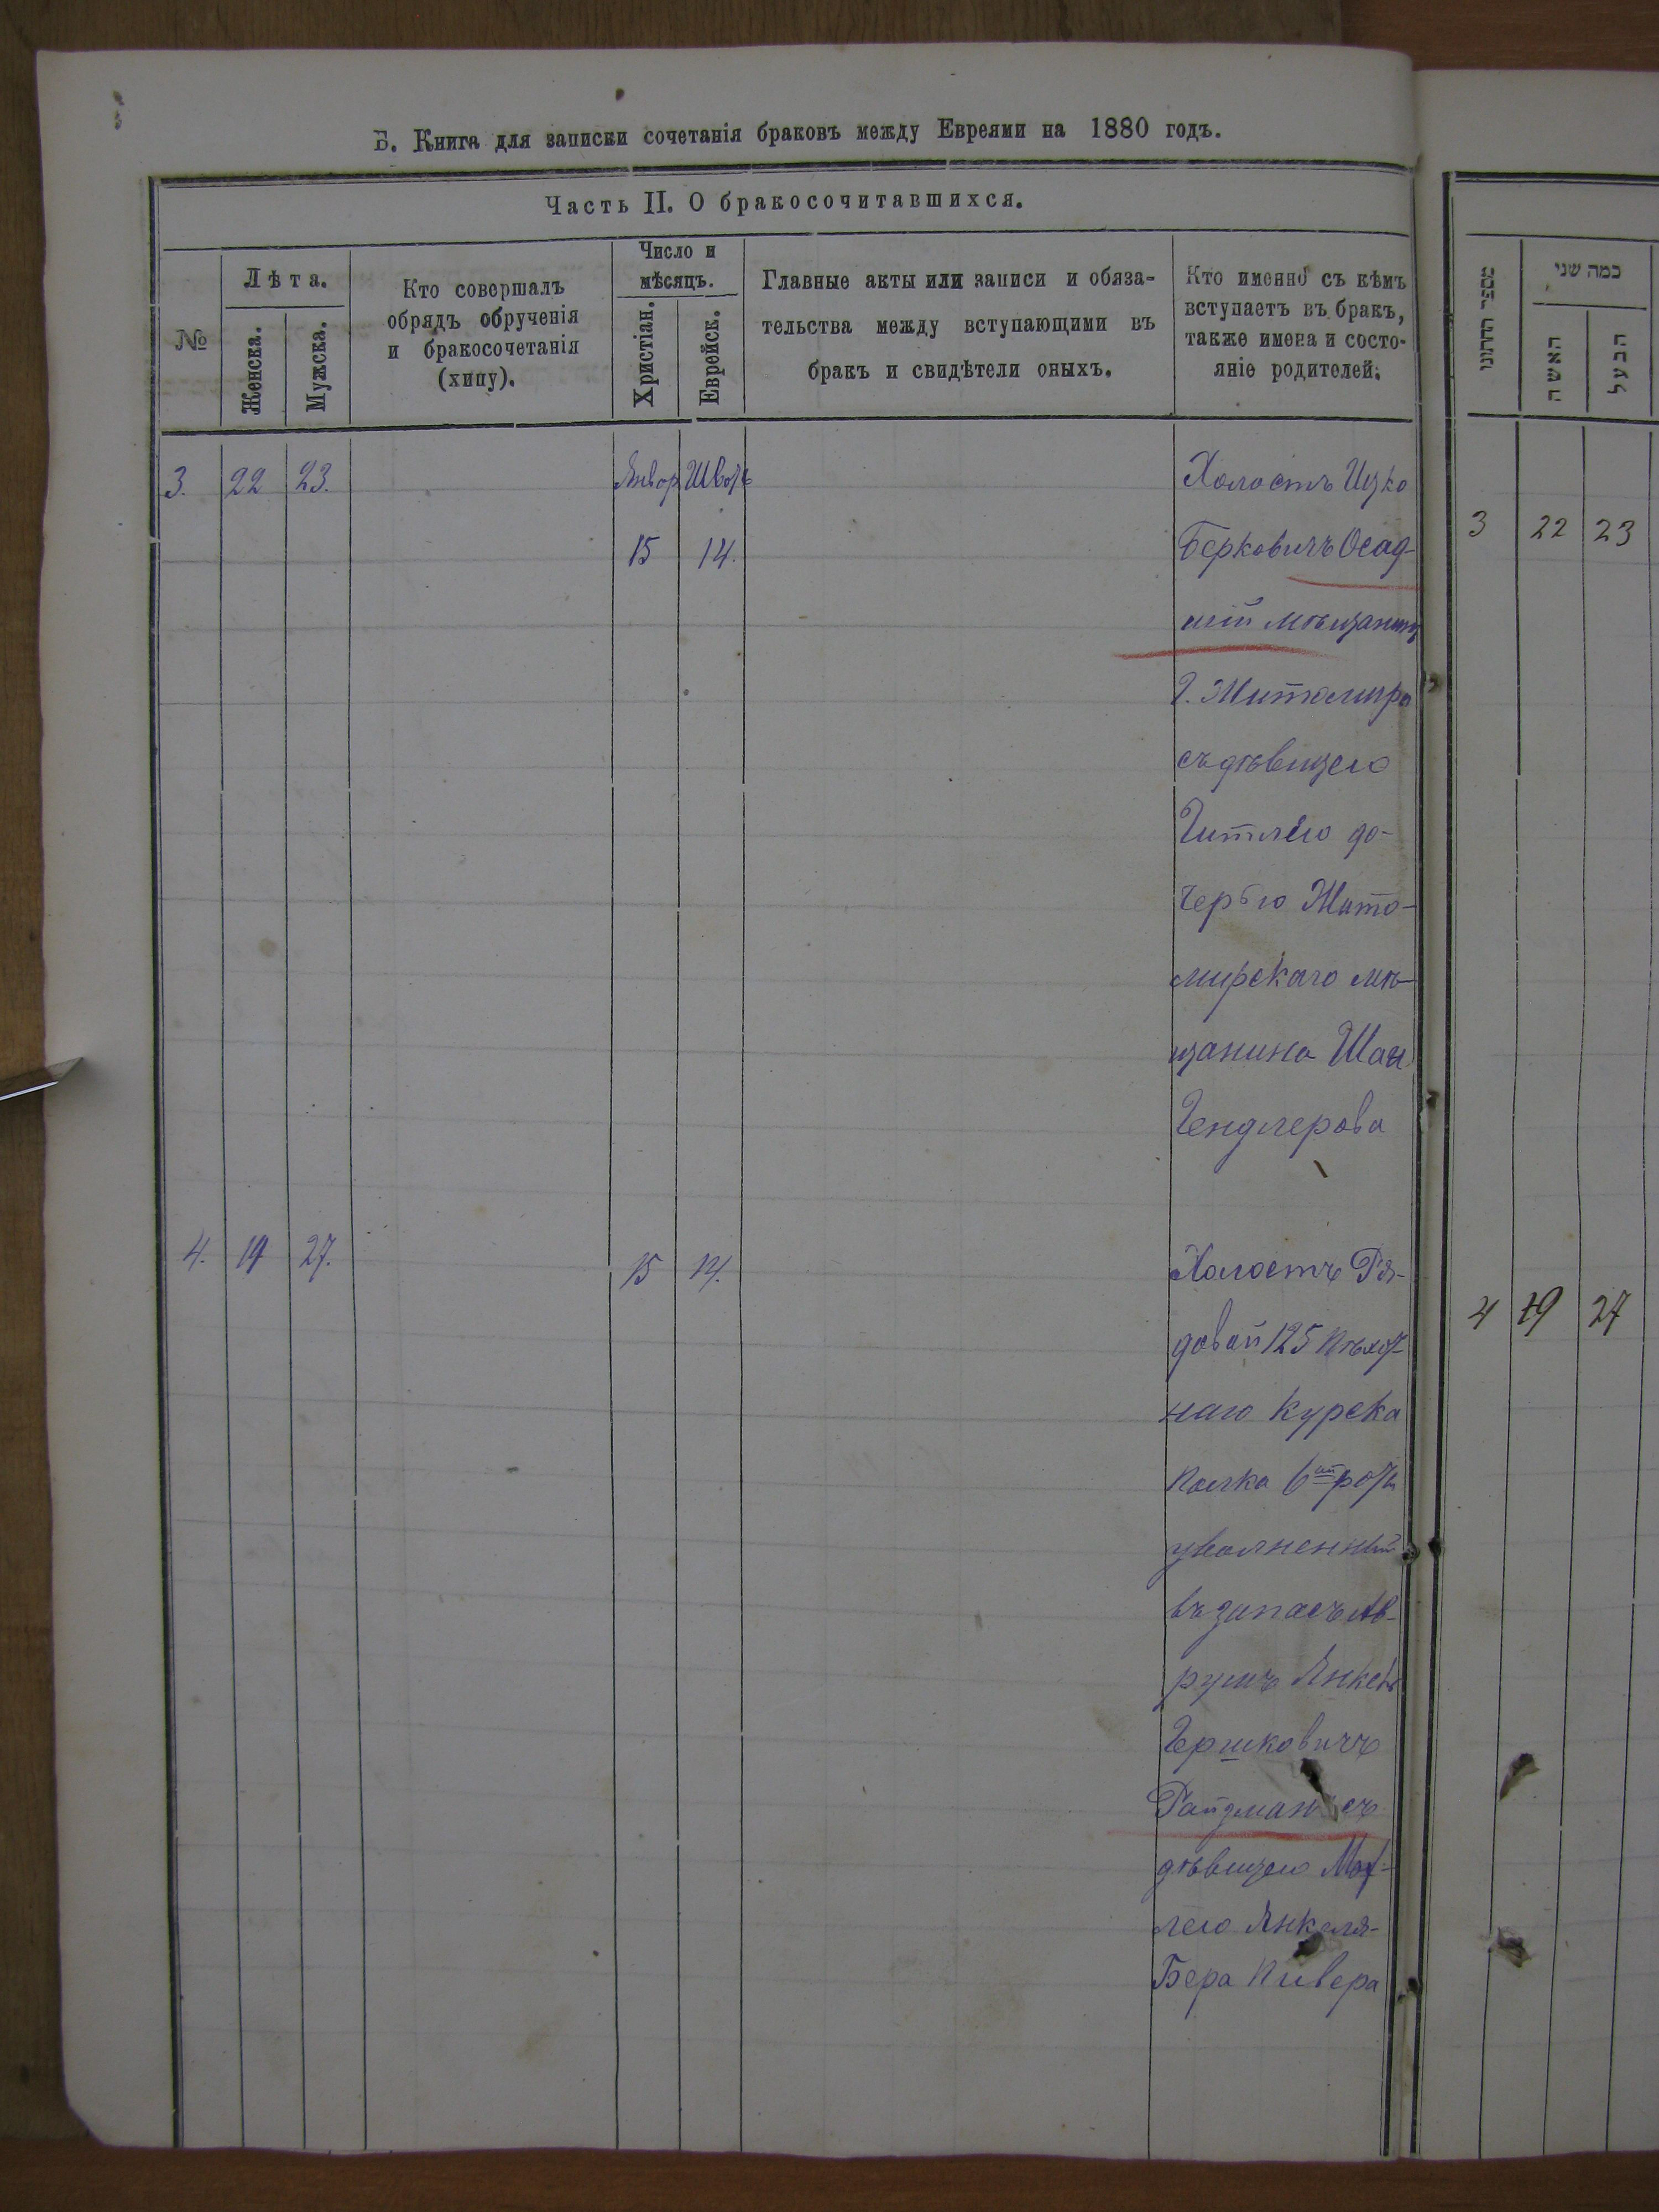 Б. Книга для записки сочетанія браковъ между Евреями на 1880 годъ.
Часть II. О бракосочитавшихся.
№
Лѣта.
Женска.
Мужска.
Кто совершалъ
обрядъ обрученія
и бракосочетанія
(хипу).
Число и
мѣсяцъ.
Христіан.
Еврейск.
Главные акты или записи и обяза-
тельства между вступающими въ
бракъ и свидѣтели оныхъ.
Кто именно съ кѣмъ
вступаетъ въ бракъ,
также имена и состо-
яніе родителей:
3. 22 23. Январ Швотъ
15 14.
Холостъ Ицко
Берковичъ Осад-
чій мѣщанинъ
Г. Житомира
съ дѣвицею
Гитлею до-
черью Жито-
мирскаго мѣ-
щанина
Гендлерова
4. 19 27. 15 14.
Холостъ Ря-
довой 125 Пѣхот-
наго Курска
полка 6ой роты
уволненный
въ запасъ Ав-
румъ Янкель
Гершковичъ
Райзман съ
дѣвицею
лею Янкеля-
Бера Пивера
מספר החתוני
כמה שני
האשה
הבעל
3 22 23
4 19 27